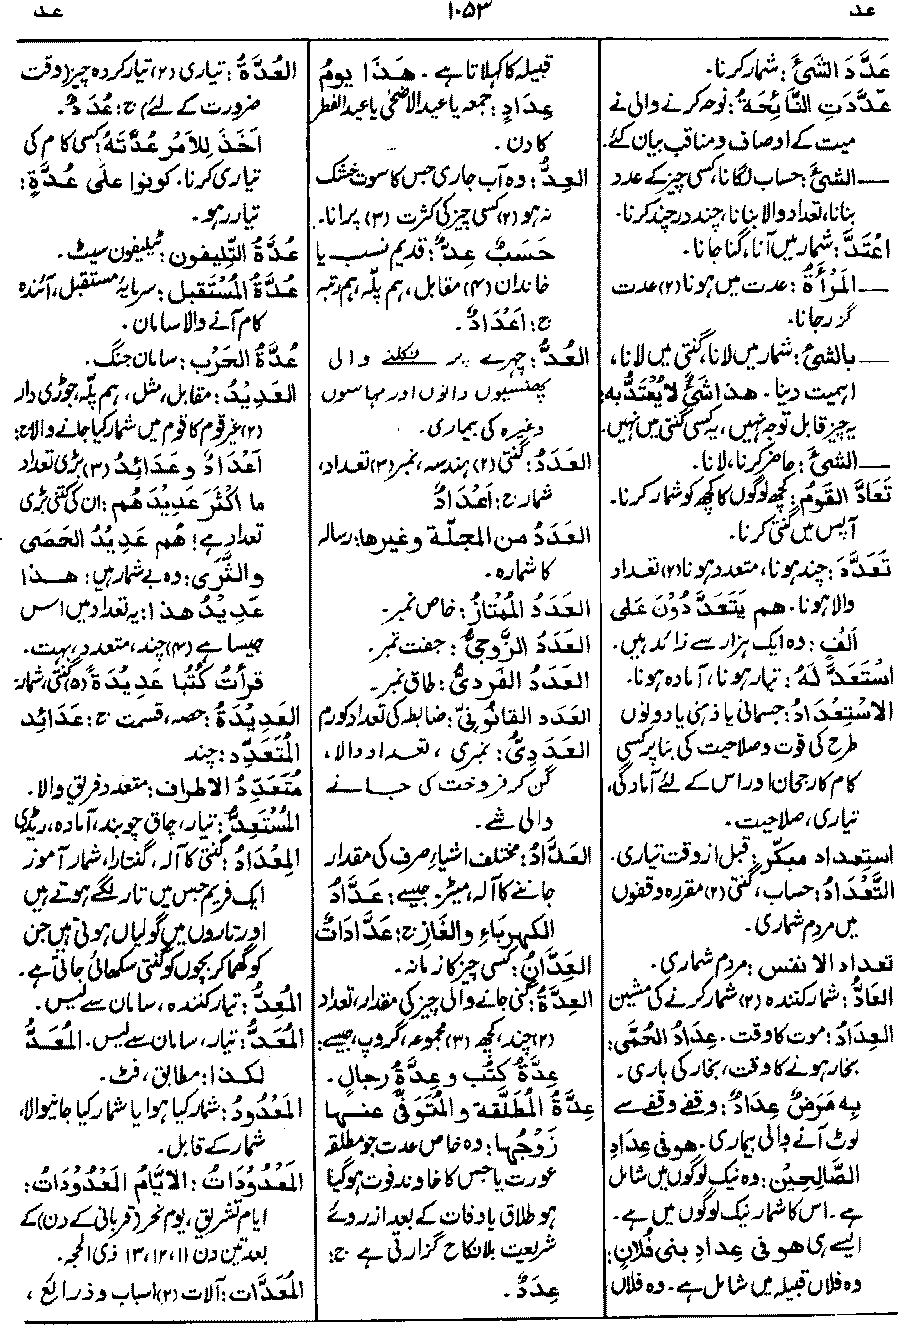 عد
۱۰۵۳
عد
عَدَّدَ الشَّیْءَ: شمار کرنا۔
عَدَّدَتِ النَّائِحَةُ: نوحہ کرنے والی نے
میت کے اوصاف و مناقب بیان کئے۔
— الشیْءَ: حساب لگانا، کسی چیز کے عدد
بنانا، تعداد والا بنانا، چند در چند کرنا۔
اعْتَدَّ: شمار میں آنا، گنا جانا۔
— المَرْأَةُ: عدت میں ہونا (۲) عدت
گزر جانا۔
— بالشیْءِ: شمار میں لانا، گنتی میں لانا،
اہمیت دینا۔ هذا شَیْءٌ لا یُعْتَدُّ به:
یہ چیز قابل توجہ نہیں، یہ کسی گنتی میں نہیں۔
— الشیْءَ: حاضر کرنا، لانا۔
تَعَادَّ القَوْمُ: کچھ لوگوں کا کچھ کو شمار کرنا۔
آپس میں گنتی کرنا۔
تَعَدَّدَ: چند ہونا، متعدد ہونا (۲) تعداد
والا ہونا۔ هم یَتَعَدَّدُوْنَ عَلی
اَلْفٍ: وہ ایک ہزار سے زائد ہیں۔
اسْتَعَدَّ لَهُ: تیار ہونا، آمادہ ہونا۔
الاسْتِعْدَادُ: جسمانی یا ذہنی یا دونوں
طرح کی قوت و صلاحیت کی بنا پر کسی
کام کا رجحان اور اس کے لئے آمادگی،
تیاری، صلاحیت۔
استعداد مبکر: قبل از وقت تیاری۔
التَّعْدَادُ: حساب، گنتی (۲) مقررہ وقفوں
میں مردم شماری۔
تعداد الانفس: مردم شماری۔
العَادُّ: شمار کنندہ (۲) شمار کرنے کی مشین
العِدَادُ: موت کا وقت۔ عِدَادُ الحُمّٰی:
بخار ہونے کا وقت، بخار کی باری۔
بِهٖ مَرَضٌ عِدَادٌ: وقفے وقفے سے
لوٹ آنے والی بیماری۔ هو فی عِدَادِ
الصَّالِحِیْنَ: وہ نیک لوگوں میں شامل
ہے۔ اس کا شمار نیک لوگوں میں ہے۔
ایسے ہی هو فی عِدَادِ بنی فُلَانٍ:
وہ فلاں قبیلہ میں شامل ہے۔ وہ فلاں
قبیلہ کا کہلاتا ہے۔ هَذَا یومُ
عِدَادٍ: جمعہ یا عید الاضحیٰ یا عید الفطر
کا دن۔
العِدُّ: وہ آب جاری جس کا سوت خشک
نہ ہو (۲) کسی چیز کی کثرت (۳) پرانا۔
حَسَبٌ عِدٌّ: قدیم نسب یا
خاندان (۴) مقابل، ہم پلّہ، ہم رتبہ
ج: اَعْدَادٌ۔
العُدُّ: چہرے پر نکلنے والی
پھنسیوں دانوں اور مہاسوں
وغیرہ کی بیماری۔
العَدَدُ: گنتی (۲) ہندسہ، نمبر (۳) تعداد،
شمار ج: اَعْدَادٌ
العَدَدُ من المجلّة وغیرها: رسالہ
کا شمارہ۔
العَدَدُ المُمْتَازُ: خاص نمبر۔
العَدَدُ الزَّوجِیُّ: جفت نمبر۔
العَدَدُ الفَردِیُّ: طاق نمبر۔
العَدَد القانُونِیّ: ضابطہ کی تعداد کورم
العَدَدِیُّ: نمبری، تعداد والا،
گن کر فروخت کی جانے
والی شے۔
العَدَّادُ: مختلف اشیاء صرف کی مقدار
جاننے کا آلہ، میٹر جیسے: عَدَّادُ
الکهرباءِ والغَازِ ج: عَدَّادَاتٌ
العِدَّانُ: کسی چیز کا زمانہ۔
العِدَّةُ: گنی جانے والی چیز کی مقدار، تعداد
(۲) چند، کچھ (۳) مجموعہ، گروپ، جیسے:
عِدَّةُ کُتُبٍ و عِدَّةُ رجالٍ۔
عِدَّةُ المُطَلَّقَة والمُتَوَفّٰی عنها
زَوْجُها: وہ خاص عدت جو مطلقہ
عورت یا جس کا خاوند فوت ہو گیا
ہو طلاق یا وفات کے بعد از روئے
شریعت بلا نکاح گزارتی ہے ج:
عِدَدٌ۔
العُدَّةُ: تیاری (۲) تیار کردہ چیز (وقت
ضرورت کے لئے) ج: عُدَدٌ۔
اَخَذَ لِلاَمْرِ عُدَّتَهُ: کسی کام کی
تیاری کرنا۔ کونوا علی عُدَّةٍ:
تیار رہو۔
عُدَّةُ التِّلیفون: ٹیلیفون سیٹ۔
عُدَّةُ المُسْتَقْبِل: سرمایۂ مستقبل، آئندہ
کام آنے والا سامان۔
عُدَّةُ الحَرْب: سامان جنگ۔
العَدِیْدُ: مقابل، مثل، ہم پلّہ، جوڑی دار
(۲) غیر قوم کا قوم میں شمار کیا جانے والا ج:
اَعْدَادٌ و عَدَائِدُ (۳) بڑی تعداد
ما اَکْثَرَ عَدِیْدَهُم: ان کی کتنی بڑی
تعداد ہے؛ هُم عَدِیْدُ الحَصٰی
والثَّرٰی: وہ بے شمار ہیں؛ هذا
عَدِیْدُ هذا: یہ تعداد میں اس
جیسا ہے (۴) چند، متعدد، بہت۔
قرأتُ کُتُبًا عَدِیْدَةً (۵) گنتی، شمار۔
العَدِیْدَةُ: حصہ، قسمت ج: عَدَائِد
المُتَعَدِّد: چند
مُتَعَدِّدُ الاطراف: متعدد فریق والا۔
المُسْتَعِدُّ: تیار، چاق چوبند، آمادہ، ریڈی
المِعْدَادُ: گنتی کا آلہ، گنتارا، شمار آموز
ایک فریم جس میں تار لگے ہوتے ہیں
اور تاروں میں گولیاں ہوتی ہیں جن
کو گھما کر بچوں کو گنتی سکھائی جاتی ہے۔
المُعِدُّ: تیار کنندہ، سامان سے لیس۔
المُعَدُّ: تیار، سامان سے لیس۔ المُعَدُّ
لکذا: مطابق، فٹ۔
المَعْدُودُ: شمار کیا ہوا یا شمار کیا جانیوالا،
شمار کے قابل۔
المَعْدُوْدَاتُ: الایّامُ المَعْدُوْدَاتُ:
ایام تشریق، یوم نحر (قربانی کے دن) کے
بعد تین دن ۱۱، ۱۲، ۱۳ ذی الحجہ۔
المُعَدَّات: آلات (۲) اسباب و ذرائع،